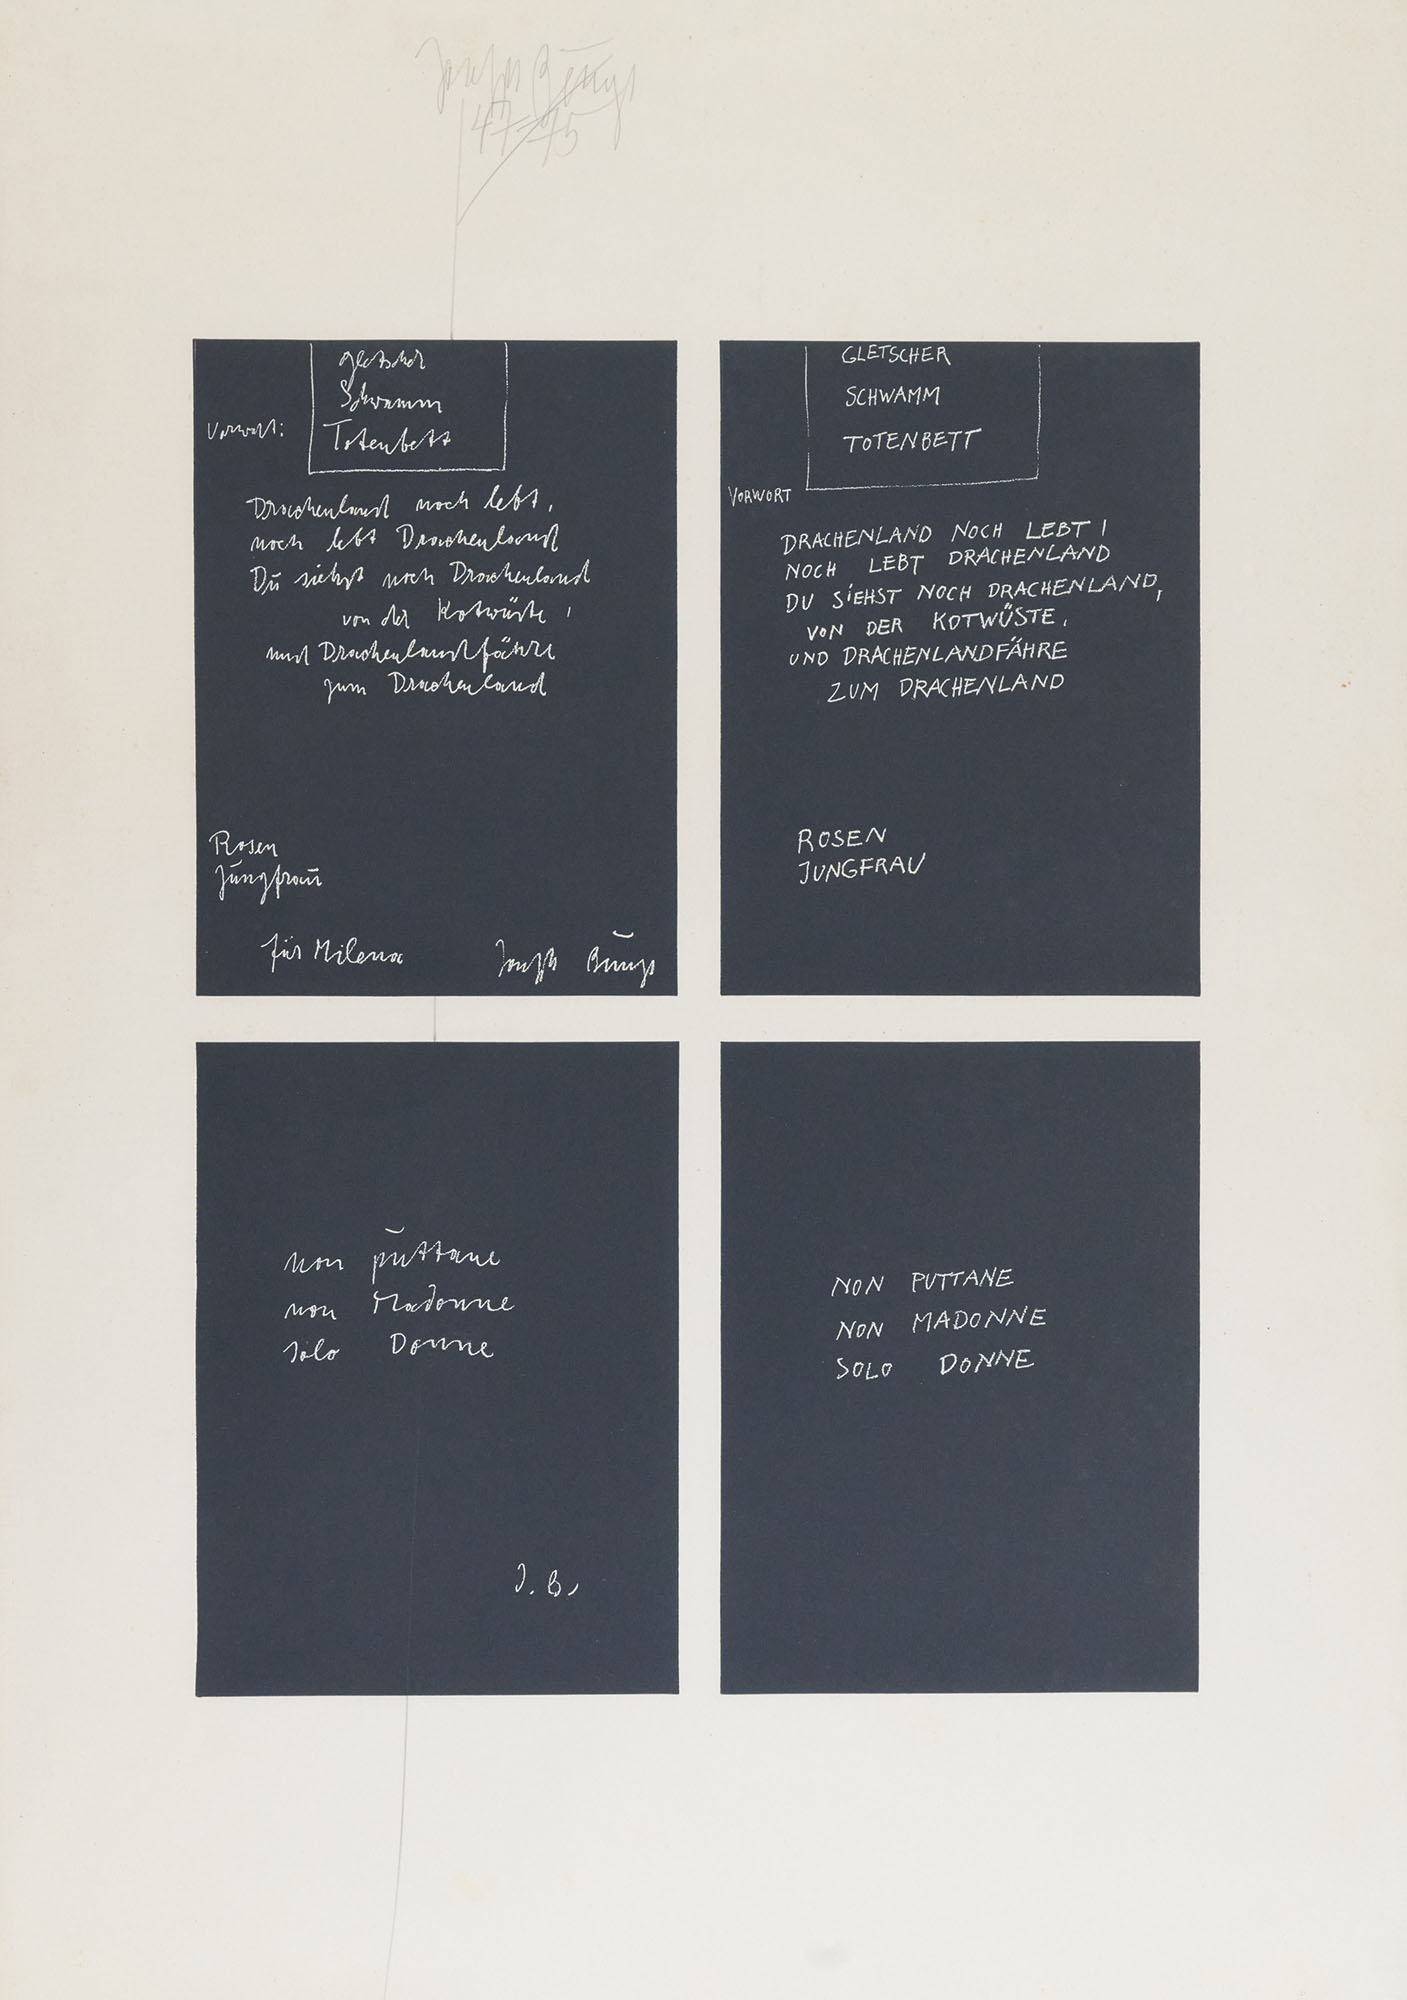 Joseph Beuys
47/75
gletscher
Schwamm
Vorwort: Totenbett
Drachenland noch lebt,
noch lebt Drachenland
Du siehst noch Drachenland
von der Kotwüste,
und Drachenlandfähre
zum Drachenland
Rosen
Jungfrau
für Milena Joseph Beuys
GLETSCHER
SCHWAMM
TOTENBETT
VORWORT
DRACHENLAND NOCH LEBT,
NOCH LEBT DRACHENLAND
DU SIEHST NOCH DRACHENLAND,
VON DER KOTWÜSTE,
UND DRACHENLANDFÄHRE
ZUM DRACHENLAND
ROSEN
JUNGFRAU
non puttane
non Madonne
solo Donne
J. B.
NON PUTTANE
NON MADONNE
SOLO DONNE